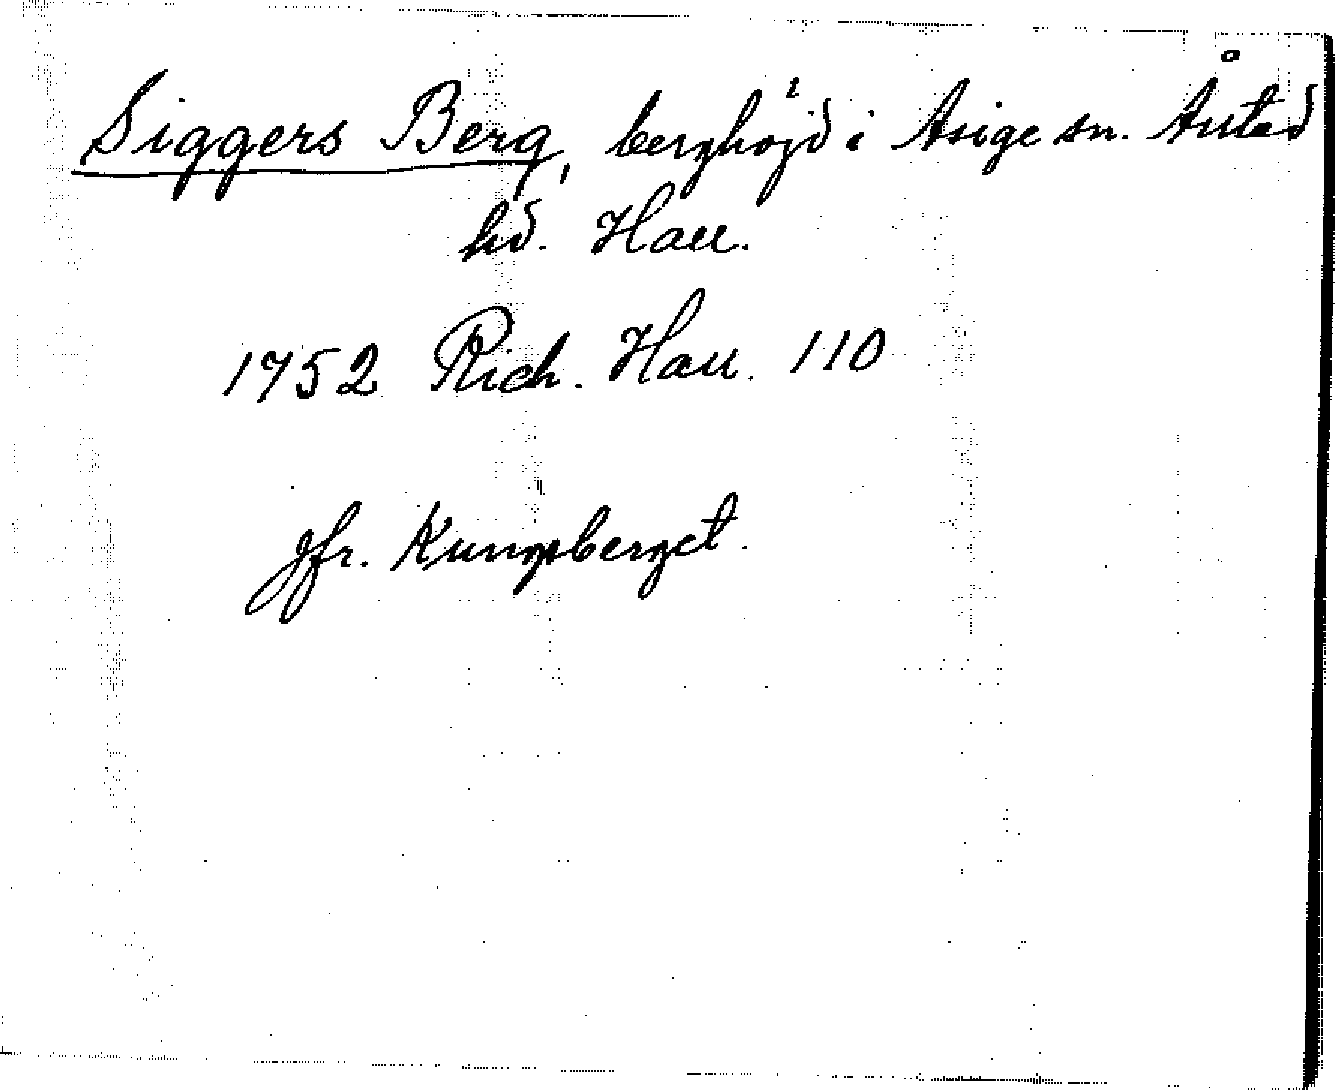 Siggers Berg, berghöjd i Asige sn. Årstad
hd. Hall.
1752 Rich. Hall. 110
Jfr. Kungsberget.